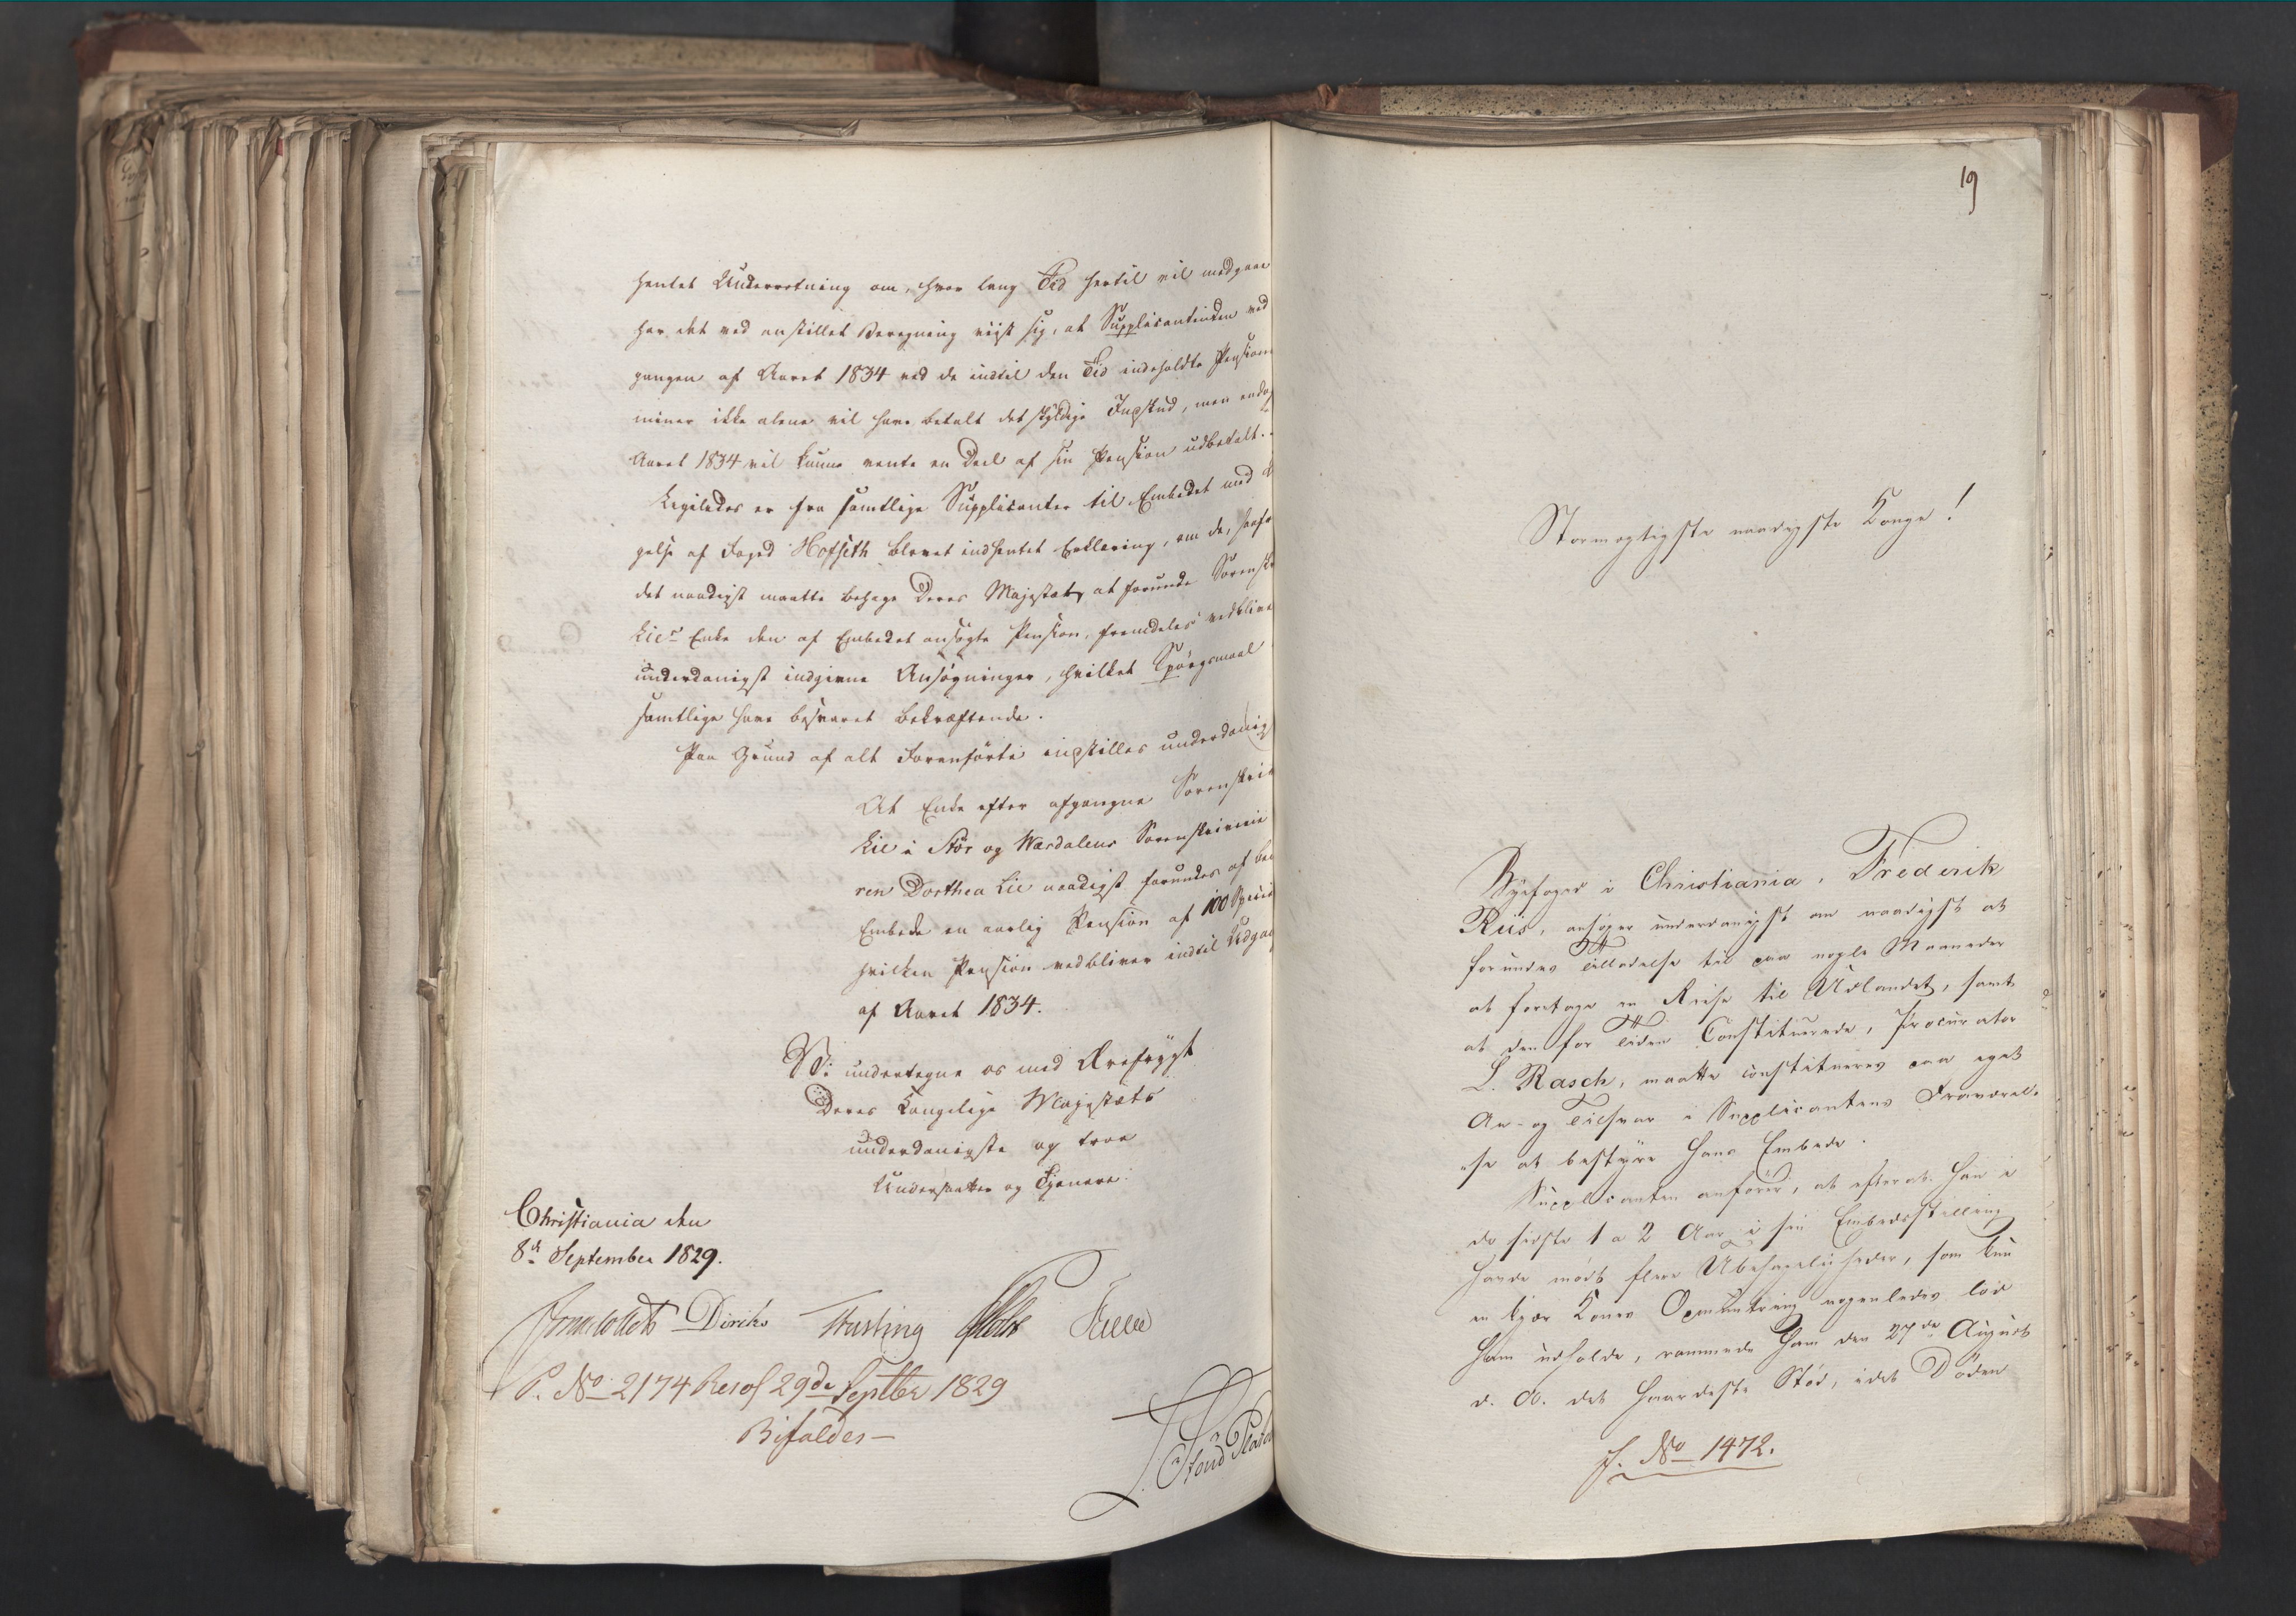 hentet Underretning om, hvor lang Tid hertil vil medgaae
har det ved anstillet Beregning viist sig, at Supplicantinden ved
gangen af Aaret 1834 ved de indtil den Tid indeholdte Pension
miner ikke alene vil have betalt det skyldige Indskud, men endog
Aaret 1834 vil kunne vente en Deel af sin Pension udbetalt.
Ligeledes er fra samtlige Supplicanter til Embedet med
gelse af Foged Hofseth blevet indhentet Erklæring, om de, saafr
det naadigst maatte behage Deres Majestæt, at forunde Sorenskr
Lies Enke den af Embedet ansøgte Pension, fremdeles vedblive
underdanigst indgivne Ansøgninger, hvilket Spørgsmaal
samtlige have besvaret bekræftende.
Paa Grund af alt Foranførte indstilles underdanig
At Enke efter afgangne Sorenskri
Lie i Stør og Værdalens Sorenskriverie
ren Dorthea Lie naadigst forundes af be
Embede en aarlig Pension af 100 Specie
hvilken Pension vedbliver indtil Udgan
af Aaret 1834.
Vi undertegne os med Ærefrygt
Deres Kongelige Majestæts
underdanigste og troe
Undersaatter og Tjenere.
Christiania den
8de September 1829.
Diriks
P. No 2174 Resol 29de Septbr 1829
Bifaldes—
19
Stormægtigste naadigste Konge!
Byefoged i Christiania, Frederik
Riis, ansøger underdanigst om naadigst at
forundes Tilladelse til paa nogle Maaneder
at foretage en Reise til Udlandet, samt
at den for Tiden Constituerede, Procurator
L. Rasch, maatte constitueres paa eget
An- og Tilsvar i Supplicantens Fraværel-
-se at bestyre hans Embede.
Supplicanten anfører, at efterat han i
de sidste 1 a 2 Aar i sin Embedsstilling
havde mødt flere Ubehageligheder, som kun
en kjær Kones Opmuntring nogenledes lod
ham udholde, rammede ham den 27de August
d. A. det haardeste Stød, idet Døden
J. No 1472.